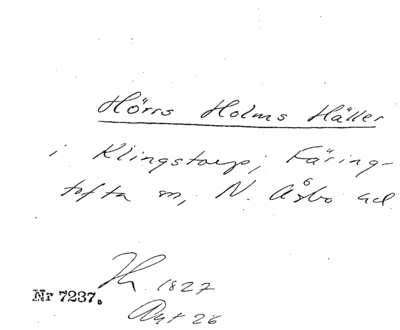 Hörrs Holms Häller
i Klingstorp, Färing-
tofta sn, N. Åsbo hd
Th. 1827
Nr 7237.
Ant 26